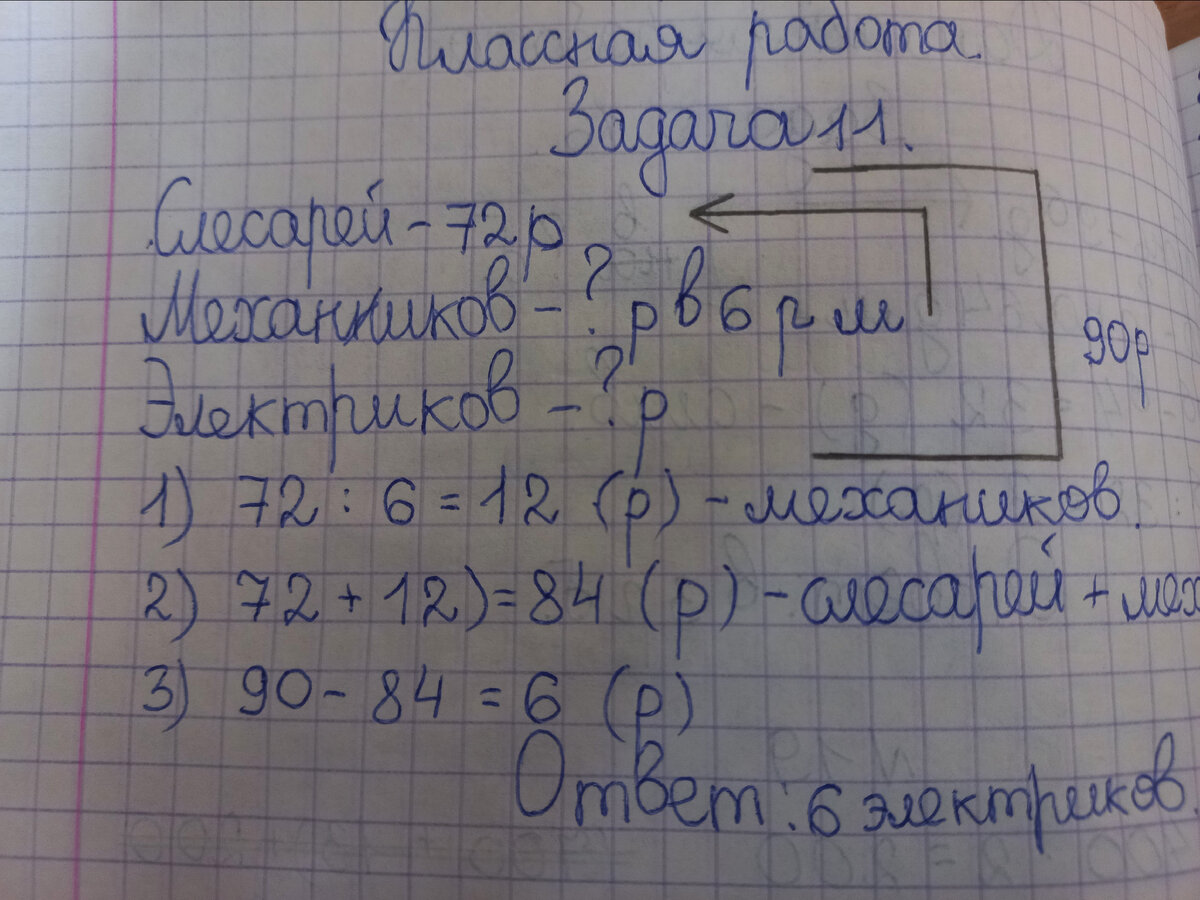 Классная работа.
Задача 11.
Слесарей - 72 р
Механников - ? р в 6 р м
Электриков - ? р
90р
1) 72 : 6 = 12 (р) - механиков.
2) 72 + 12) = 84 (р) - слесарей + мех
3) 90 - 84 = 6 (р)
Ответ: 6 электриков.